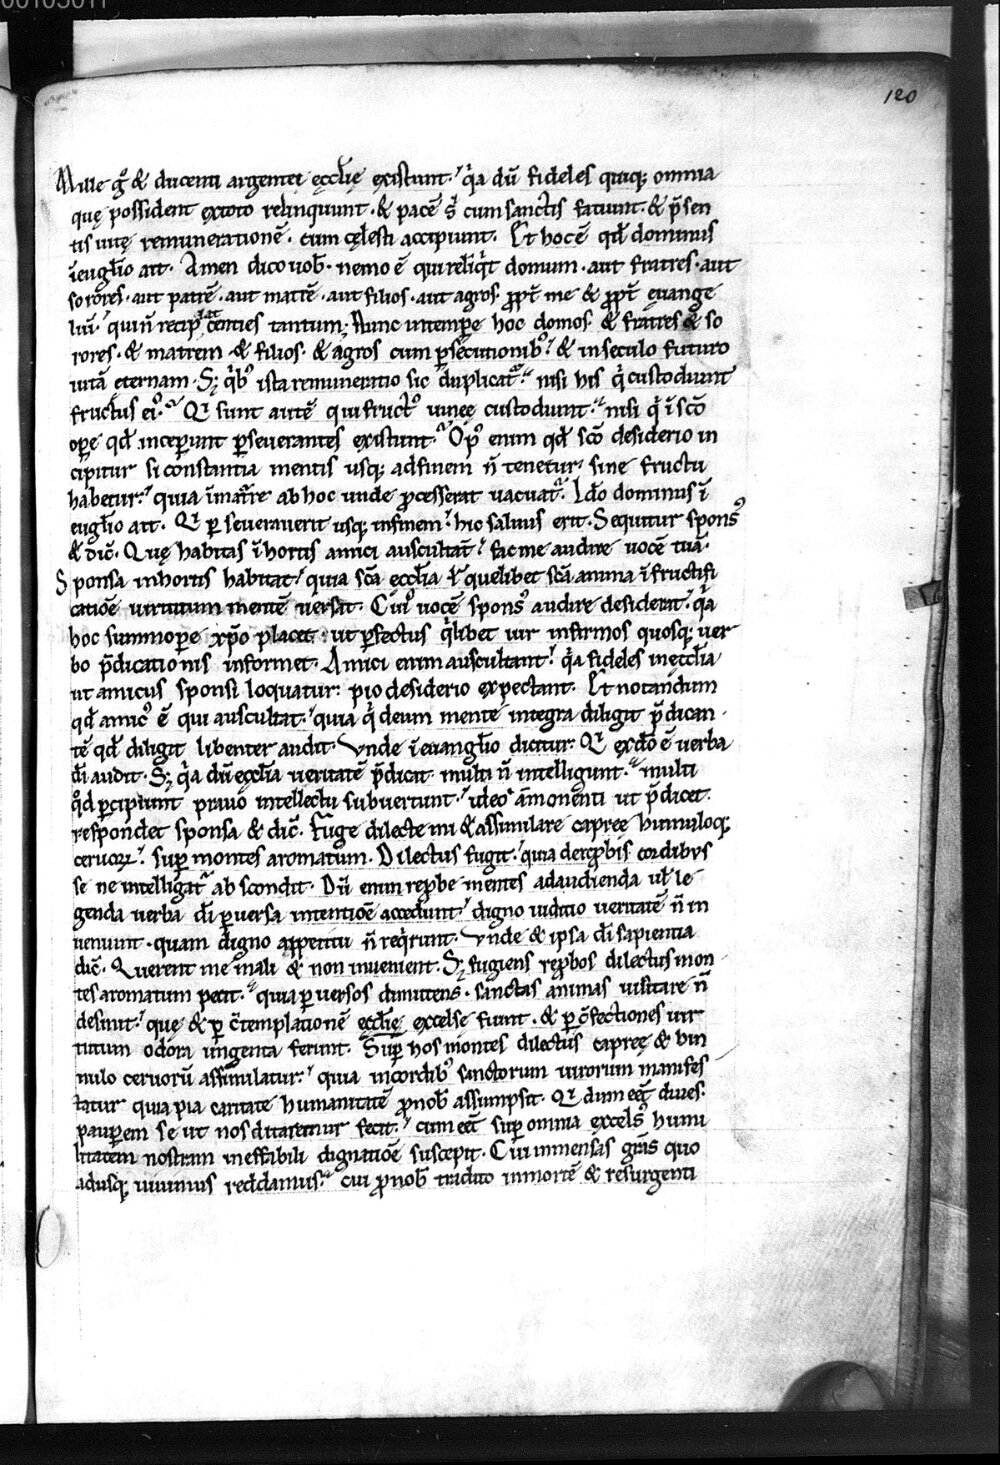 120
Mille g̊ & ducenti argentei ęcclię existunt. q̇a dū fideles quiq; omnia
quę possident extoto relinquunt. & pacē s̄ cum sanctis faciunt. & p̄sen
tis uitę remunerationē. cum cęlesti accipiunt. Et hoc ē qd̄ dominus
ī eugl̄io ait. Amen dico uob̄. nemo ē qui reliq̄t domum. aut fratres. aut
sorores. aut patrē. aut matrē. aut filios. aut agros. ꝓpt̄ me & ꝓpt̄ ęuange
liū. qui n̄ recip centies tantum; Nunc intempe hoc domos. & fratres & so
rores. & matrem & filios. & agros cum ꝑsecutionibꝰ. & in seculo futuro
uitā eternam. Sꝫ q̇bꝰ ista remuneratio sic duplicat᷑. nisi his q̇ custodiunt
fructus eiꝰ. Qꝛ sunt autē qui fructꝰ uineę custodiunt. nisi q̇ ī scō
oꝑe qd̄ inceꝑunt ꝑseuerantes existunt. Opꝰ enim qd̄ scō desiderio in
cipitur si constantia mentis usq; adfinem n̄ tenetur. sine fructu
habetur. quia īmat̄re ab hoc unde ꝓcesserat uacuat᷑. Ido dominus ī
eugl̄io ait. Qꝛ ꝑseuerauerit usq; infinem. hic saluus erit. Sequitur sponsꝰ
& dic̄. Quę habitas ī hortis amici auscultāt. fac me audire uocē tuā.
Sponsa inhortis habitat. quia sc̄a eccl̄ia ł quelibet sc̄a anima ī fructifi
catiōe uirtutum mentē uersat. Cuiꝰ uocē sponsꝰ audire desiderat. q̇a
hoc summopere xp̄o placet. ut ꝑfectus q̇libet uir infirmos quosq; uer
bo p̄dicationis informet. Amici enim auscultant. q̇a fideles inęccl̄ia
ut amicus sponsi loquatur. pio desiderio expectant. Et notandum
qd̄ amicꝰ ē qui auscultat. quia q̇ deum mente integra diligit p̄dican
tē qd̄ diligit libenter audit. Vnde ī euangl̄io dicitur. Qꝛ exdō ē uerba
dī audit. Sꝫ q̇a dū ęccl̄ia ueritatē p̄dicat. multi n̄ intelligunt. multi
qd̄ ꝑcipiunt prauo intellectu subuertunt. ideo āmonenti ut p̄dicet.
respondet sponsa & dic̄. Fuge dilecte mi & assimilare capreę hinnuloq;
ceruoꝝ. suꝑ montes aromatum. Dilectus fugit. quia dereꝓbis cordibus
se ne intelligat᷑ abscondit. Dū enim reꝓbe mentes adaudienda uł le
genda uerba dī ꝑuersa intentiōe accedunt. digno iuditio ueritatē n̄ in
ueniunt. quam digno appetitu n̄ req̇runt. Vnde & ipsa dī sapientia
dic̄. Querent me mali & non inuenient. Sꝫ fugiens reꝓbos dilectus mon
tes aromatum petit. quia ꝑuersos dimittens. sanctas animas uisitare n̄
desinit. quę & ꝑ c̄templationē ęccl̄ię excelse fiunt. & ꝑ c̄fectiones uir
tutum odora ungenta ferunt. Suꝑ hos montes dilectus capreę & hin
nulo ceruorū assimulatur. quia incordibꝰ sanctorum uirorum manifes
tatur quia pia caritate humanitatē ꝓnob̄ assumpsit. Qꝛ dum eēt diues.
pauꝑem se ut nos ditaremur fecit. cum eēt suꝑ omnia excelsꝰ humi
litatem nostram ineffabili dignatiōe suscepit. Cui inmensas grās quo
adusq; uiuimus reddamus. cui ꝓnob̄ tradito inmortē & resurgenti